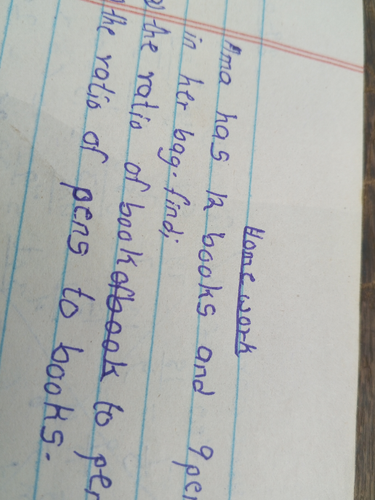 Home work
Ama has 12 books and 9 pen
in her bag. find;
a) the ratio of book to pen
the ratio of pens to books.